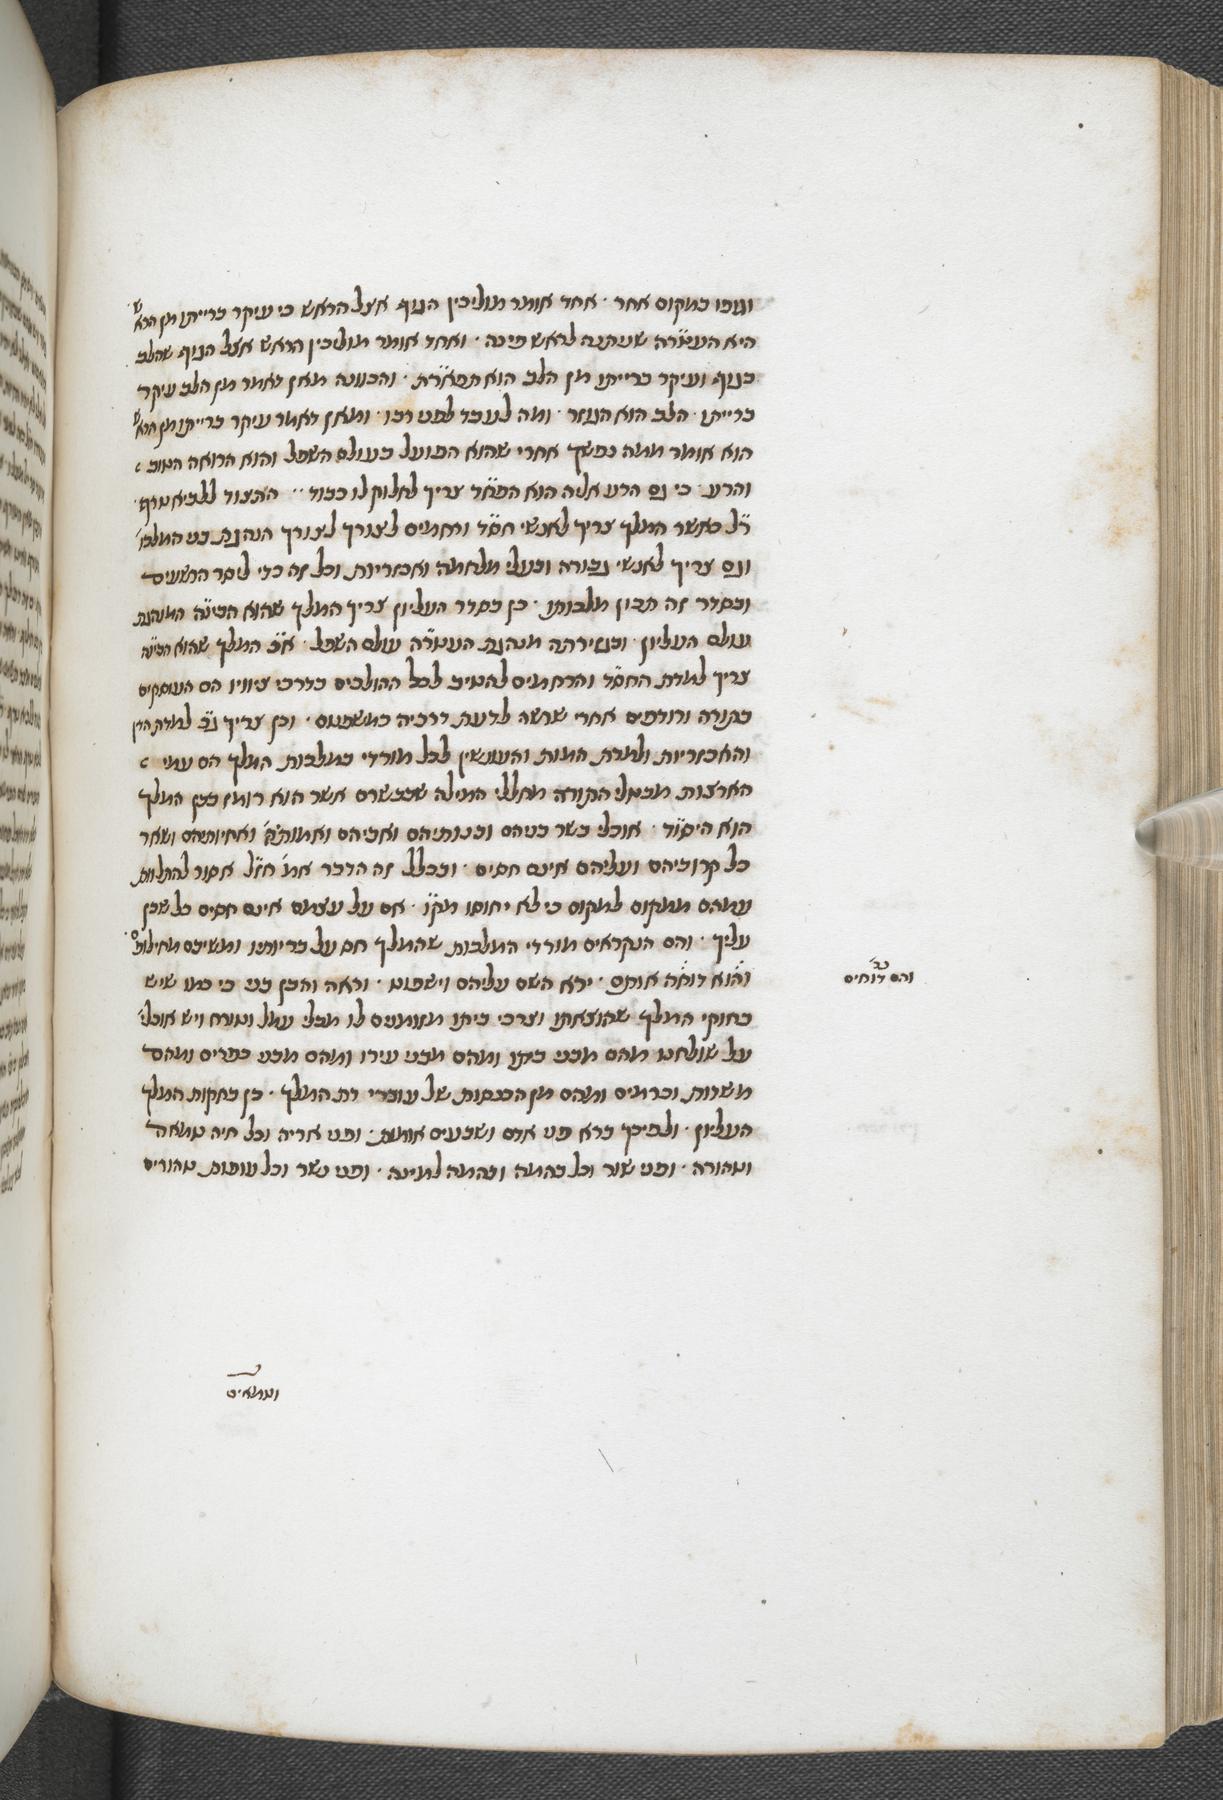 וגופו במקום אחר · אחד אומר מוליכין הגוף אצל הראש כי עיקר ברייתו מן הראש
היא העטרה שניתנה לראש פינה · ואחד אומר מוליכין הראש אצל הגוף שהלב
בגוף ועיקר ברייתו מן הלב הוא תפארת · והכוונה מאן דאמר מן הלב עיקר
ברייתו · הלב הוא הנוזר · ומה לעבד לפני רבו · ומאן דאמר עיקר ברייתו מן הראש
הוא אומר ממה נפשך אחרי שהוא הפועל בעולם השפל והוא הרואה הטוב
והרע · כי גם הרע אליה הוא הפחד צריך לחלוק לו כבוד ·· הצוד ללביא טרף ·
ר״ל כאשר המלך צריך לאנשי חסד ורחמים לצורך לצורך הנהגת בני המלכו׳
וגם צריך לאנשי גבורה ובעלי מלחמה ואכזריות וכל זה כדי ליסר הרשעים
ובסדר זה תכון מלכותו · כן בסדר העליון צריך המלך שהוא הבינה המנהגת
עולם העליון · ובגזירתה מנהגת העטרה עולם השפל · א״כ המלך שהוא הבינה
צריך למדת החסד והרחמים להטיב לכל ההולכים בדרכי ציוויו הם העוסקים
בתורה ורודפים אחרי שרשה לדעת דרכיה כמשפטם · וכן צריך ג״כ למדת הדין
והאכזריות ולמדת המות והעונשין לכל מורדי במלכות המלך הם עמי
הארצות מבטלי התורה מחללי המילה שבבשרם אשר הוא רומז בבן המלך
הוא היסוד · אוכלי בשר בניהם ובנותיהם ואביהם ואמותם ואחיותיהם ושאר
כל קרוביהם ועליהם אינם חסים · ובכלל זה הדבר אמ׳ חז״ל אסור להתלוות
עמהם ממקום למקום כי לא יחוסו מקו׳ · אם על עצמם אינם חסים כל שכן
עליך · והם הנקראים מורדי המלכות שהמלך חס על בריותיו ומשיבם מחילוף
והוא דוחה אותם · ירא השם עליהם וישפוט · וראה והבן בני כי כמו שיש
בחוקי המלך שהוצאתו וצרכי ביתו מזומנים לו מבלי עמל וטורח ויש אוכלי׳
על שולחנו מהם מבני ביתו ומהם מבני עירו ומהם מבני כפרים ומהם
משדות וכרמים ומהם מן הכנסות של עוברי דת המלך · כן בחקות המלך
העליון · ולפיכך ברא פני אדם ושבעים אומות · ופני אריה וכל חיה טמאה
וטהורה · ופני שור וכל בהמה ובהמה למינה · ופני נשר וכל עופות טהורים
והם דוחים
וטמאים